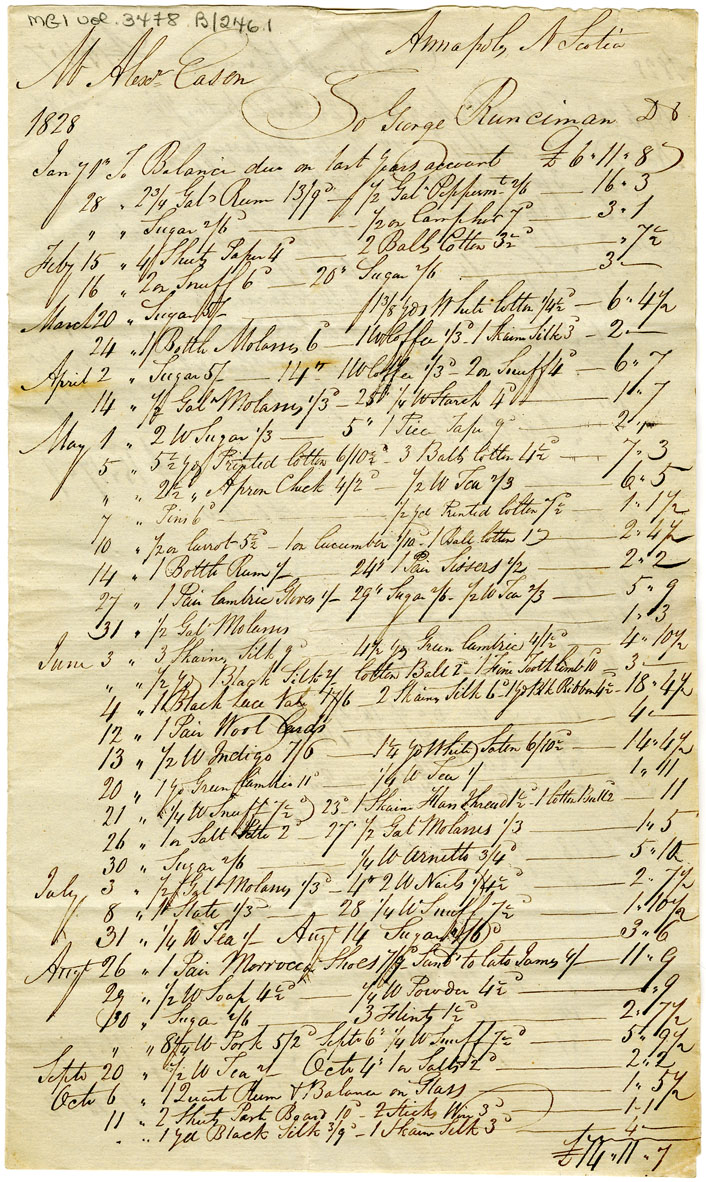 MG1 vol. 3478 B/246.1
Annapolis, N Scotia
Mr Alexr Cason
1828 To George Runciman Dr
Jany 1st To Balance due on last years account £ 6 " 11 " 8
28 " 2 3/4 Galn Rum 13/9d 1/2 Galn Peppermt 2/6 16 " 3
" " Sugar 2/6d 1/2 oz Camphor 7d 3 " 1
Feby 15 " 4 Sheets Paper 4d 2 Balls Cotton 3 1/2d " 7 1/2
16 " 2 oz Snuff 6d 20th Sugar 2/6 3 "
March 20 " Sugar 5/ 1 3/8 yds White Cotton 1/4 1/2d 6 " 4 1/2
24 " 1 Bottle Molasses 6d 1 W Coffee 1/3d 1 Skain Silk 3d 2 "
April 2 " Sugar 5/ 14th 1 W Coffee 1/3d 2 oz Snuff 4d 6 " 7
14 " 1/2 Galn Molasses 1/3d 25th 1/4 W Starch 4d 1 " 7
May 1 " 2 W Sugar 1/3 5th 1 Piece Tape 9d 2 "
5 " 5 1/2 yds Printed Cotton 6/10 1/2d 3 Balls Cotton 4 1/2d 7 " 3
" " 2 1/2 " Apron Check 4/2d 1/2 W Tea 2/3 6 " 5
7 " Pins 6d 1/2 yd Printed Cotton 7 1/2d 1 " 1 1/2
10 " 1/2 oz Carrot 5 1/2d 1 oz Cucumber 1/10d 1 Ball Cotton 1d 2 " 4 1/2
14 " 1 Bottle Rum 1/ 24th 1 Pair Sissers 1/2 2 " 2
27 " 1 Pair Cambric Gloves 1/ 29th Sugar 2/6 1/2 W Tea 2/3 5 " 9
31 " 1/2 Galn Molasses 1 " 3
June 3 " 3 Skains Silk 9d 4 1/2 yds Green Cambric 4/1 1/2d 4 " 10 1/2
" " 1/2 yd Black Silk 2/ Cotton Ball 2d 1 Fine Tooth Comb 10d 3 "
4 " 1 Black Lace Vale 17/6 2 Skains Silk 6d 1 yd Blk Ribbon 4 1/2 18 " 4 1/2
12 " 1 Pair Wool Cards 4 "
13 " 1/2 W Indigo 7/6 1 1/4 yd White Saten 6/10 1/2 14 " 4 1/2
20 " 1 yd Green Cambric 11d 1/4 W Tea 1/ 1 " 11
21 " 1/4 W Snuff 7 1/2d 23d 1 Skain Flax Thread 1 1/2d 1 Cotton Ball 2 11
26 " 1 oz Salt Petre 2d 27th 1/2 Galn Molasses 1/3 1 " 5
30 " Sugar 2/6 1/4 W Arnetto 3/4d 5 " 10
July 3 " 1/2 Galn Molasses 1/3d 4th 2 W Nails 1/4 1/2d 2 " 7 1/2
8 " 1 Slate 1/3d 28 1/4 W Snuff 7 1/2d 1 " 10 1/2
31 " 1/4 W Tea 1/ Augt 14 Sugar 2/6d 3 " 6
Augt 26 " 1 Pair Morrocco Shoes 7/9 Sund to late James 4/ 11 " 9
29 " 1/2 W Soap 4 1/2d 1/4 W Powder 4 1/2d " 9
30 " Sugar 2/6 3 Flints 1 1/2d 2 " 7 1/2
" " 8 1/4 W Pork 5/2d Septr 6th 1/4 W Snuff 7 1/2d 5 " 9 1/2
Septr 20 " 1/2 W Tea 2/ Octr 4th 1 oz Salts 2d 2 " 2
Octr 6 " 1 Quart Rum & Balance on Glass 1 " 5 1/2
11 " 2 Sheets Past Board 10d 2 Sticks Wax 3d 1 " 1
" " 1 yd Black Silk 3/9d 1 Skain Silk 3d 4 "
£ 14 " 11 " 7